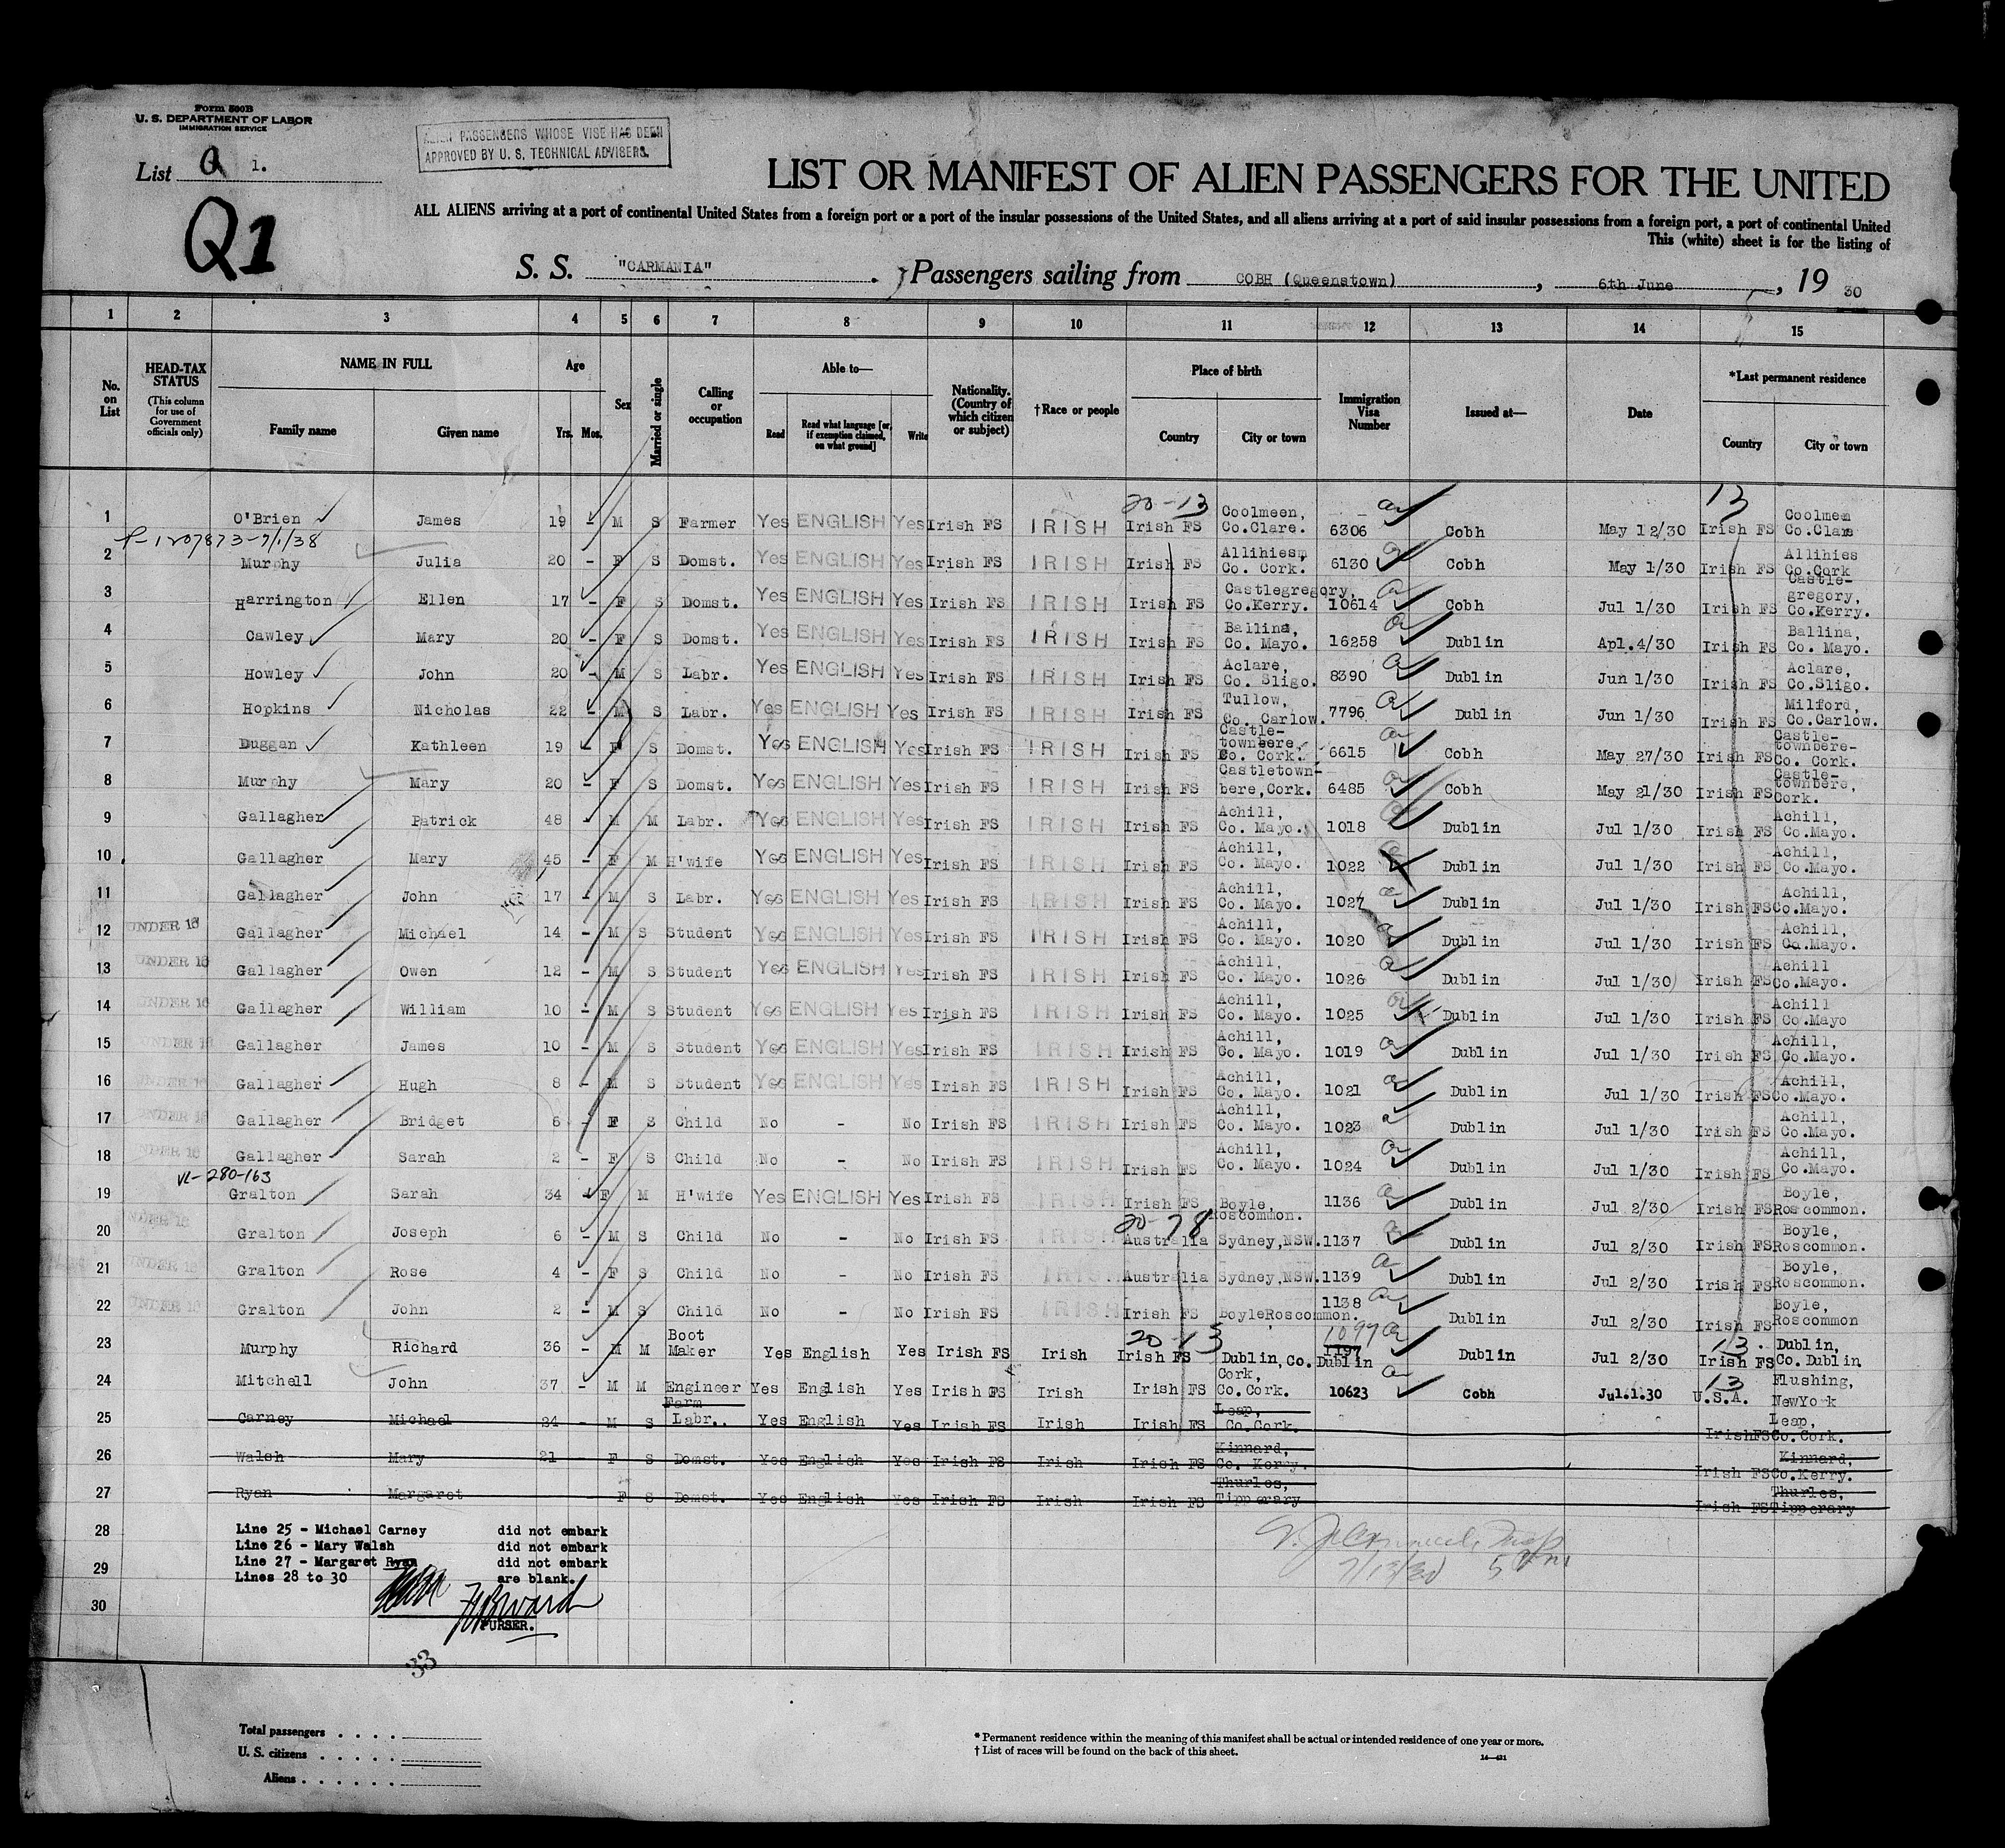 Form 500B
U. S. DEPARTMENT OF LABOR
IMMIGRATION SERVICE
ALIEN PASSENGERS WHOSE VISE HAS BEEN
APPROVED BY U. S. TECHNICAL ADVISERS.
List Q 1.
Q1
LIST OR MANIFEST OF ALIEN PASSENGERS FOR THE UNITED
ALL ALIENS arriving at a port of continental United States from a foreign port or a port of the insular possessions of the United States, and all aliens arriving at a port of said insular possessions from a foreign port, a port of continental United
This (white) sheet is for the listing of
S. S. "CARMANIA" Passengers sailing from COBH (Queenstown), 6th June, 19 30
1 2 3 4 5 6 7 8 9 10 11 12 13 14 15
No. on List HEAD-TAX STATUS (This column for use of Government officials only) NAME IN FULL Family name Given name Age Yrs. Mos. Sex Married or single Calling or occupation Able to— Read Read what language [or, if exemption claimed, on what ground] Write Nationality. (Country of which citizen or subject) †Race or people Place of birth Country City or town Immigration Visa Number Issued at— Date *Last permanent residence Country City or town
20-13 13
1 O'Brien James 19 - M S Farmer Yes ENGLISH Yes Irish FS IRISH Irish FS Coolmeen, Co.Clare. 6306 Cobh May 12/30 Irish FS Coolmen Co.Clare
P-1207873-7/1/38
2 Murphy Julia 20 - F S Domst. Yes ENGLISH Yes Irish FS IRISH Irish FS Allihies, Co. Cork. 6130 Cobh May 1/30 Irish FS Allihies Co.Cork
3 Harrington Ellen 17 - F S Domst. Yes ENGLISH Yes Irish FS IRISH Irish FS Castlegregory, Co.Kerry. 10614 Cobh Jul 1/30 Irish FS Castle-gregory, Co.Kerry.
4 Cawley Mary 20 - F S Domst. Yes ENGLISH Yes Irish FS IRISH Irish FS Ballina, Co. Mayo. 16258 Dublin Apl.4/30 Irish FS Ballina, Co. Mayo.
5 Howley John 20 - M S Labr. Yes ENGLISH Yes Irish FS IRISH Irish FS Aclare, Co. Sligo. 8390 Dublin Jun 1/30 Irish FS Aclare, Co.Sligo.
6 Hopkins Nicholas 22 - M S Labr. Yes ENGLISH Yes Irish FS IRISH Irish FS Tullow, Co. Carlow. 7796 Dublin Jun 1/30 Irish FS Milford, Co.Carlow.
7 Duggan Kathleen 19 - F S Domst. Yes ENGLISH Yes Irish FS IRISH Irish FS Castle-townbere, Co. Cork. 6615 Cobh May 27/30 Irish FS Castle-townbere- Co. Cork.
8 Murphy Mary 20 - F S Domst. Yes ENGLISH Yes Irish FS IRISH Irish FS Castletown-bere,Cork. 6485 Cobh May 21/30 Irish FS Castle-townbere, Cork.
9 Gallagher Patrick 48 - M M Labr. Yes ENGLISH Yes Irish FS IRISH Irish FS Achill, Co. Mayo. 1018 Dublin Jul 1/30 Irish FS Achill, Co.Mayo.
10 Gallagher Mary 45 - F M H'wife Yes ENGLISH Yes Irish FS IRISH Irish FS Achill, Co. Mayo. 1022 Dublin Jul 1/30 Irish FS Achill, Co.Mayo.
11 Gallagher John 17 - M S Labr. Yes ENGLISH Yes Irish FS IRISH Irish FS Achill, Co. Mayo. 1027 Dublin Jul 1/30 Irish FS Achill, Co.Mayo.
12 UNDER 16 Gallagher Michael 14 - M S Student Yes ENGLISH Yes Irish FS IRISH Irish FS Achill, Co. Mayo. 1020 Dublin Jul 1/30 Irish FS Achill, Co.Mayo.
13 UNDER 16 Gallagher Owen 12 - M S Student Yes ENGLISH Yes Irish FS IRISH Irish FS Achill, Co. Mayo. 1026 Dublin Jul 1/30 Irish FS Achill Co.Mayo.
14 UNDER 16 Gallagher William 10 - M S Student Yes ENGLISH Yes Irish FS IRISH Irish FS Achill, Co. Mayo. 1025 Dublin Jul 1/30 Irish FS Achill Co.Mayo
15 UNDER 16 Gallagher James 10 - M S Student Yes ENGLISH Yes Irish FS IRISH Irish FS Achill, Co. Mayo. 1019 Dublin Jul 1/30 Irish FS Achill, Co.Mayo.
16 UNDER 16 Gallagher Hugh 8 - M S Student Yes ENGLISH Yes Irish FS IRISH Irish FS Achill, Co. Mayo. 1021 Dublin Jul 1/30 Irish FS Achill, Co.Mayo.
17 UNDER 16 Gallagher Bridget 6 - F S Child No - No Irish FS IRISH Irish FS Achill, Co. Mayo. 1023 Dublin Jul 1/30 Irish FS Achill, Co.Mayo.
18 UNDER 16 Gallagher Sarah 2 - F S Child No - No Irish FS IRISH Irish FS Achill, Co. Mayo. 1024 Dublin Jul 1/30 Irish FS Achill, Co.Mayo.
VL-280-163
19 Gralton Sarah 34 - F M H'wife Yes ENGLISH Yes Irish FS IRISH Irish FS Boyle, Roscommon. 1136 Dublin Jul 2/30 Irish FS Boyle, Roscommon.
20-78
20 UNDER 16 Gralton Joseph 6 - M S Child No - No Irish FS IRISH Australia Sydney,NSW. 1137 Dublin Jul 2/30 Irish FS Boyle, Roscommon.
21 UNDER 16 Gralton Rose 4 - F S Child No - No Irish FS IRISH Australia Sydney,NSW. 1139 Dublin Jul 2/30 Irish FS Boyle, Roscommon.
22 UNDER 16 Gralton John 2 - M S Child No - No Irish FS IRISH Irish FS BoyleRoscommon. 1138 Dublin Jul 2/30 Irish FS Boyle, Roscommon
20-13 1097 13
23 Murphy Richard 36 - M M Boot Maker Yes English Yes Irish FS Irish Irish FS Dublin, Co. Dublin 1197 Dublin Jul 2/30 Irish FS Dublin, Co. Dublin
13
24 Mitchell John 37 - M M Engineer Yes English Yes Irish FS Irish Irish FS Cork, Co.Cork. 10623 Cobh Jul.1.30 U.S.A. Flushing, NewYork
25 Carney Michael 24 - M S Farm Labr. Yes English Yes Irish FS Irish Irish FS Leap, Co.Cork. IrishFS Leap, Co.Cork.
26 Walsh Mary 21 - F S Domst. Yes English Yes Irish FS Irish Irish FS Kinnard, Co. Kerry. Irish FS Kinnard, Co.Kerry.
27 Ryan Margaret F S Domst. Yes English Yes Irish FS Irish Irish FS Thurles, Tipperary Irish FS Thurles, Tipperary
28 Line 25 - Michael Carney did not embark
Line 26 - Mary Walsh did not embark
29 Line 27 - Margaret Ryan did not embark
Lines 28 to 30 are blank.
7/13/30
30
PURSER.
33
Total passengers
U. S. citizens
Aliens
* Permanent residence within the meaning of this manifest shall be actual or intended residence of one year or more.
† List of races will be found on the back of this sheet.
14—421